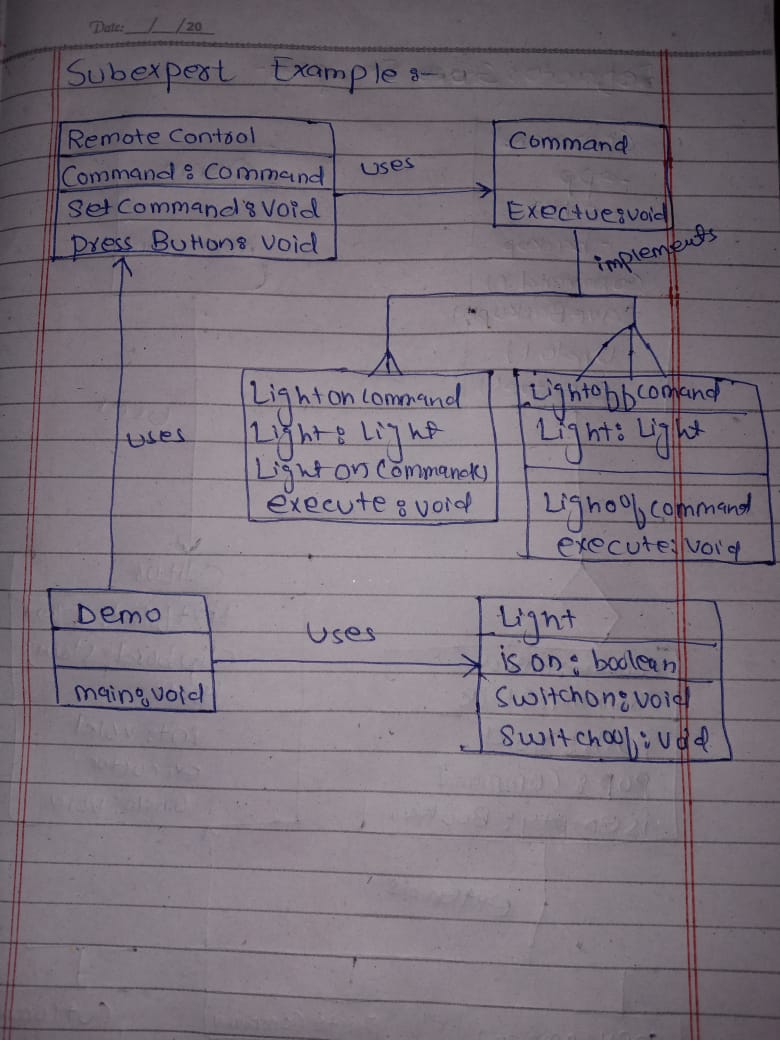 Date: __/__/20__
Subexpert Example :-
Remote Control
Command : Command
Set Command : Void
Press Button : Void
uses
Command
Exectue : void
implements
Light on Command
Light : Light
Light on Command()
execute : void
Lightoff comand
Light : Light
Lighoof command
execute : void
uses
Demo
main : void
Uses
Light
is on : boolean
Switchon : void
Switchoof : void